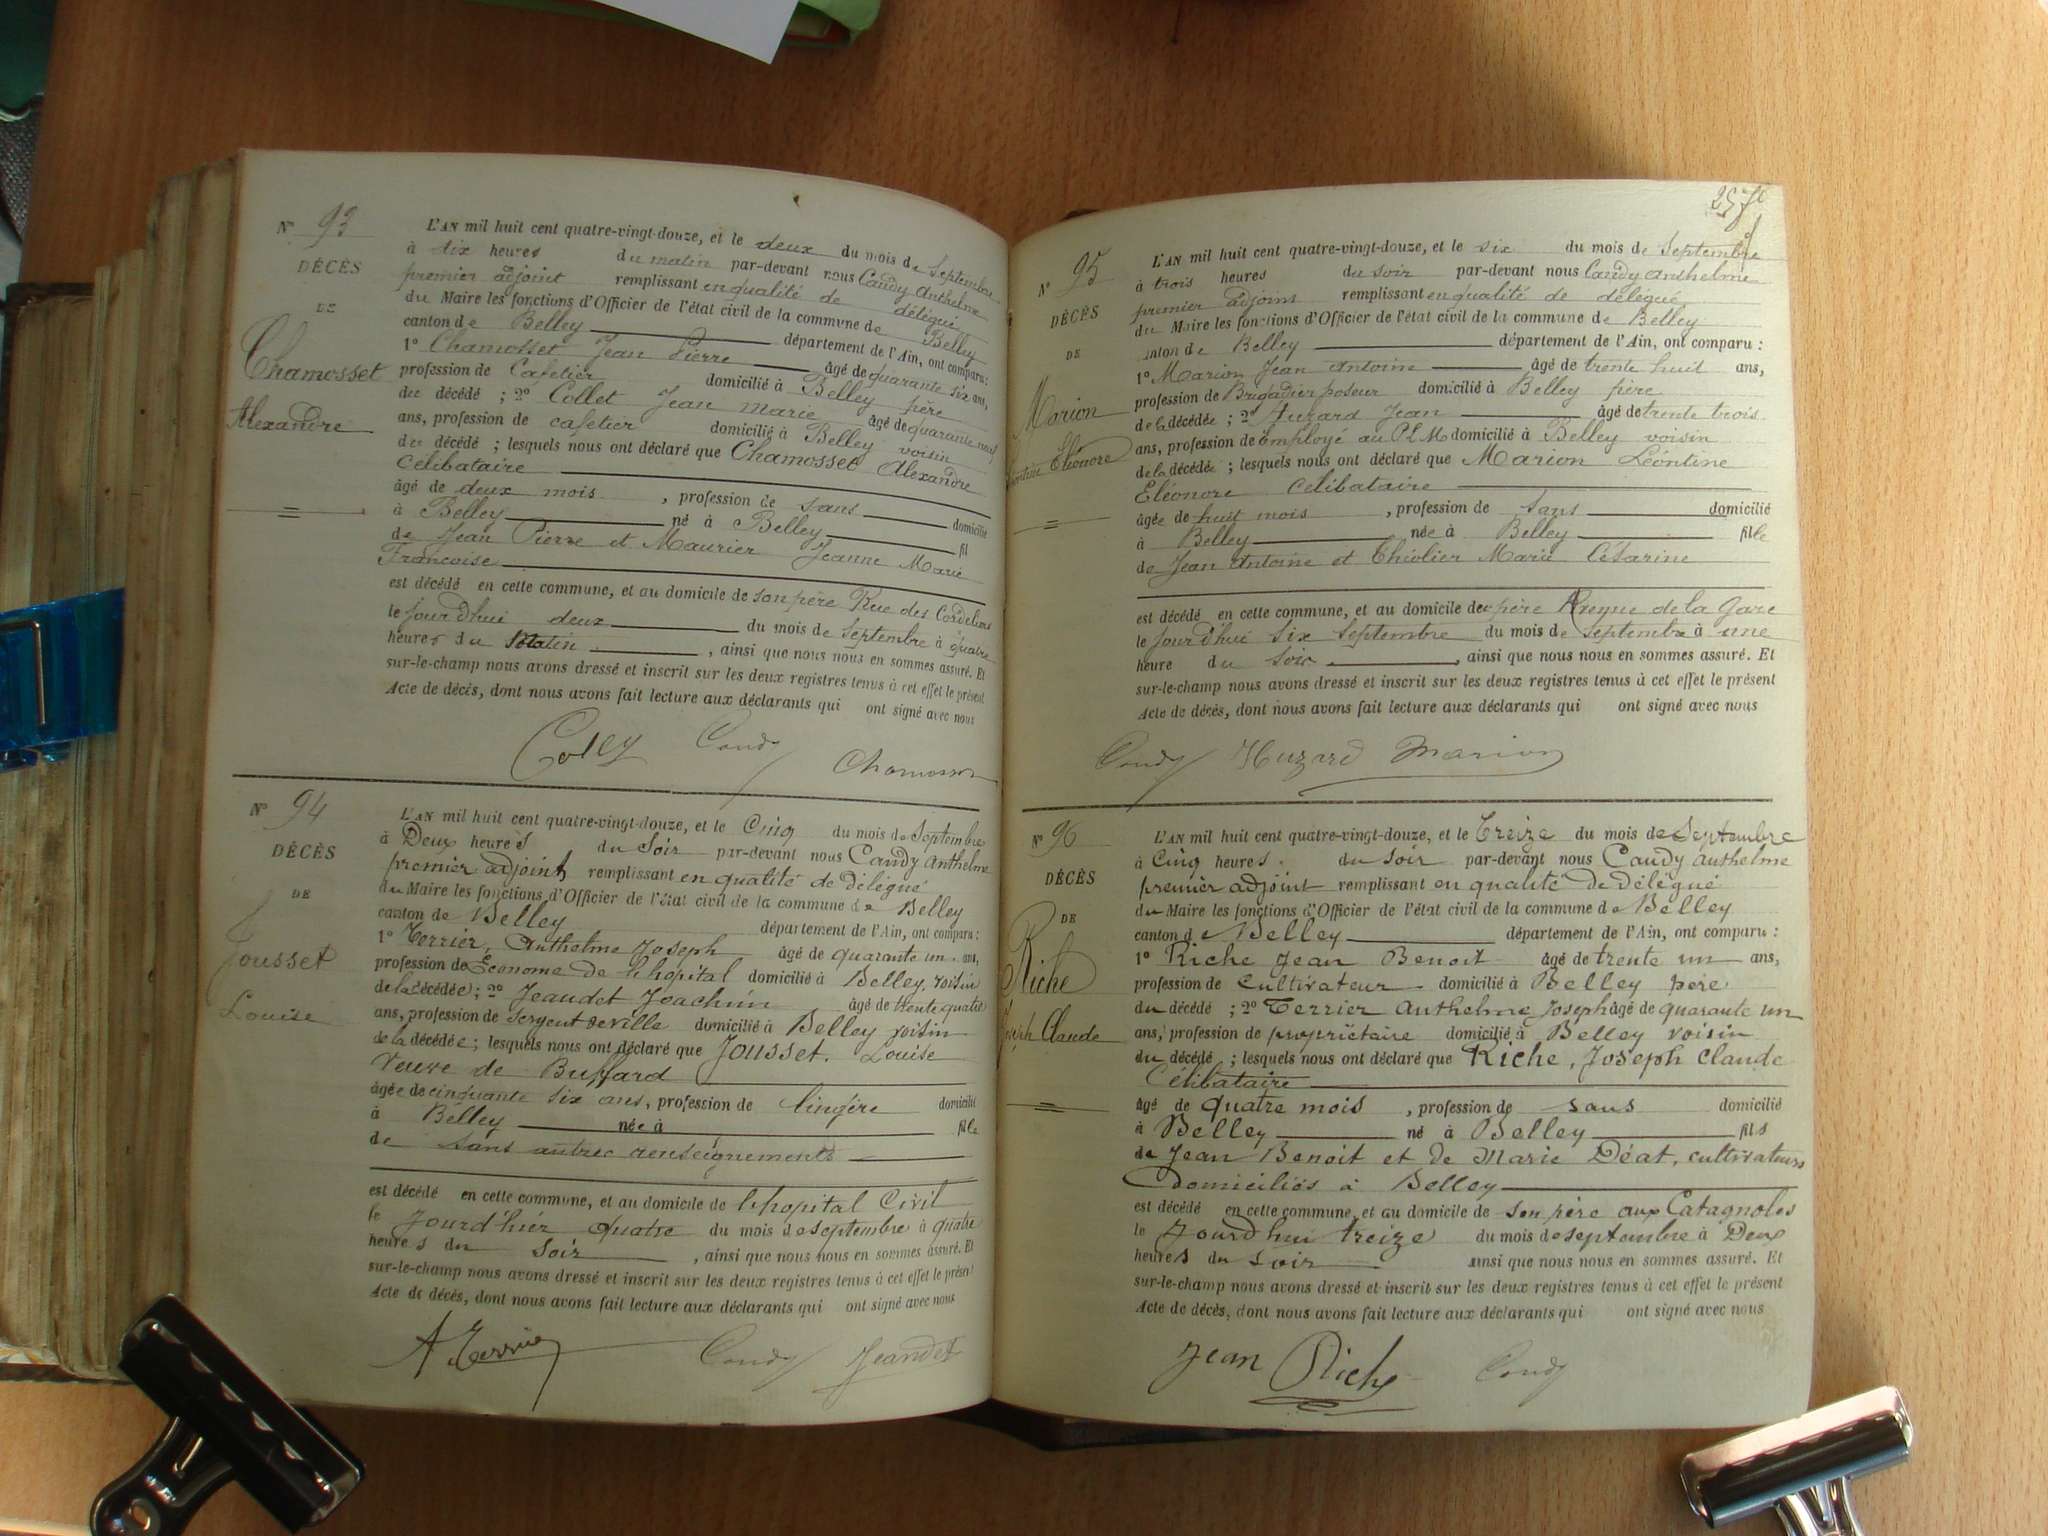 Nº 93
DÉCÈS
DE
Chamosset
Alexandre
L'AN mil huit cent quatre-vingt-douze, et le deux du mois de Septembre
à dix heures du matin par-devant nous Caudy Anthelme
premier adjoint remplissant en qualité de délégué
du Maire les fonctions d'Officier de l'état civil de la commune de Belley
canton de Belley département de l'Ain, ont comparu :
1º Chamosset Jean Pierre âgé de quarante six ans,
profession de Cafetier domicilié à Belley père
du décédé ; 2º Collet Jean Marie âgé de quarante neuf
ans, profession de cafetier domicilié à Belley voisin
du décédé ; lesquels nous ont déclaré que Chamosset Alexandre
Célibataire
âgé de deux mois , profession de sans domicilié
à Belley né à Belley fil
de Jean Pierre et Maurier Jeanne Marie
Françoise
est décédé en cette commune, et au domicile de son père Rue des Cordeliers
le jourd'hui deux du mois de Septembre à quatre
heures du Matin , ainsi que nous nous en sommes assuré. Et
sur-le-champ nous avons dressé et inscrit sur les deux registres tenus à cet effet le présent
Acte de décès, dont nous avons fait lecture aux déclarants qui ont signé avec nous
Caudy
Nº 94
DÉCÈS
DE
Jousset
Louise
L'AN mil huit cent quatre-vingt-douze, et le Cinq du mois de Septembre
à Deux heures du Soir par-devant nous Caudy Anthelme
premier adjoint remplissant en qualité de Délégué
du Maire les fonctions d'Officier de l'état civil de la commune de Belley
canton de Belley département de l'Ain, ont comparu :
1º Terrier, Anthelme Joseph âgé de quarante un ans,
profession de Econome de l'hopital domicilié à Belley, voisin
de la décédée ; 2º Jeandet Joachim âgé de trente quatre
ans, profession de Sergent de ville domicilié à Belley voisin
de la décédée ; lesquels nous ont déclaré que Jousset. Louise
Veuve de Buffard
âgée de cinquante six ans, profession de lingère domicilié
à Belley née à fille
de sans autres renseignements
est décédé en cette commune, et au domicile de l'hopital Civil
le Jourd'hier quatre du mois de septembre à quatre
heures du Soir , ainsi que nous nous en sommes assuré. Et
sur-le-champ nous avons dressé et inscrit sur les deux registres tenus à cet effet le présent
Acte de décès, dont nous avons fait lecture aux déclarants qui ont signé avec nous
A Terrier Caudy Jeandet
Nº 95
DÉCÈS
DE
Marion
Léontine Eléonore
L'AN mil huit cent quatre-vingt-douze, et le six du mois de Septembre
à trois heures du soir par-devant nous Caudy Anthelme
premier adjoint remplissant en qualité de délégué
du Maire les fonctions d'Officier de l'état civil de la commune de Belley
canton de Belley département de l'Ain, ont comparu :
1º Marion Jean Antoine âgé de trente huit ans,
profession de Brigadier poseur domicilié à Belley père
de la décédée ; 2º Huzard Jean âgé de trente trois
ans, profession de employé au PLM domicilié à Belley voisin
de la décédée ; lesquels nous ont déclaré que Marion Léontine
Eléonore Célibataire
âgée de huit mois , profession de sans domicilié
à Belley née à Belley fille
de Jean Antoine et Thiolier Marie Césarine
est décédé en cette commune, et au domicile de père Avenue de la Gare
le jourd'hui six septembre du mois de septembre à une
heure du soir , ainsi que nous nous en sommes assuré. Et
sur-le-champ nous avons dressé et inscrit sur les deux registres tenus à cet effet le présent
Acte de décès, dont nous avons fait lecture aux déclarants qui ont signé avec nous
Caudy Huzard Marion
Nº 96
DÉCÈS
DE
Riche
Joseph Claude
L'AN mil huit cent quatre-vingt-douze, et le Treize du mois de Septembre
à Cinq heures du soir par-devant nous Caudy Anthelme
premier adjoint remplissant en qualité de délégué
du Maire les fonctions d'Officier de l'état civil de la commune de Belley
canton de Belley département de l'Ain, ont comparu :
1º Riche Jean Benoit âgé de trente un ans,
profession de Cultivateur domicilié à Belley père
du décédé ; 2º Terrier Anthelme Joseph âgé de quarante un
ans, profession de propriétaire domicilié à Belley voisin
du décédé ; lesquels nous ont déclaré que Riche, Joseph Claude
Célibataire
âgé de quatre mois , profession de sans domicilié
à Belley né à Belley fils
de Jean Benoit et de Marie Déat, cultivateurs
Domiciliés à Belley
est décédé en cette commune, et au domicile de son père aux Catagnoles
le Jourd'hui treize du mois de septembre à Deux
heures du soir ainsi que nous nous en sommes assuré. Et
sur-le-champ nous avons dressé et inscrit sur les deux registres tenus à cet effet le présent
Acte de décès, dont nous avons fait lecture aux déclarants qui ont signé avec nous
Jean Riche Caudy